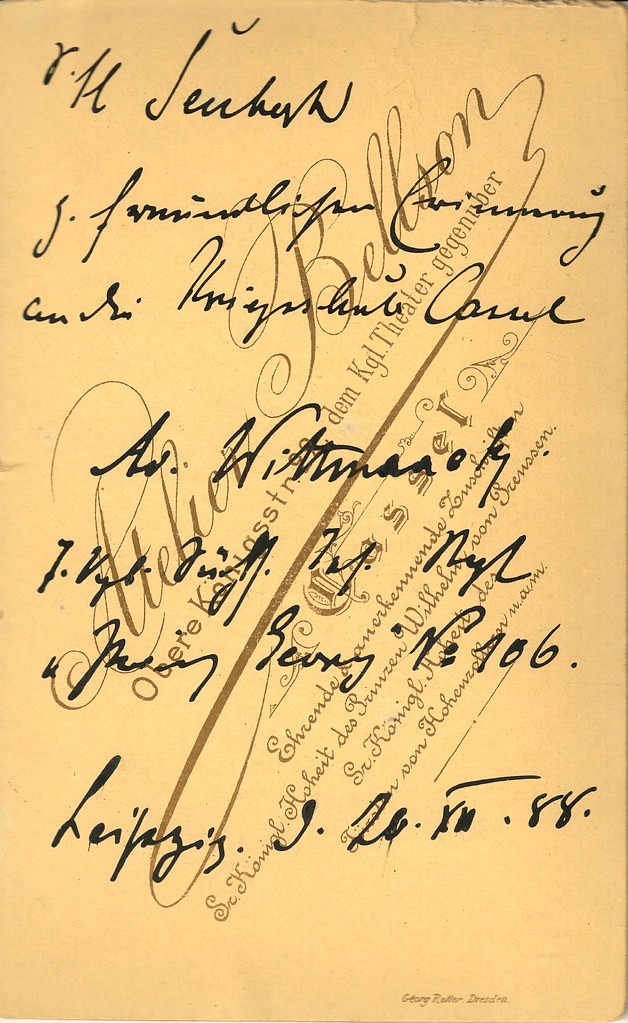 z. freundlichen Erinnerung
an die Kriegsschule Cassel
Ad. Wittmaack,
7. Kgl. Sächs. Inf. Rgt
„Prinz Georg" No 106.
Leipzig. d. 20. XII. 88.
Atelier Bellson
Obere Königsstrasse, dem Kgl. Theater gegenüber
Cassel
Ehrende & anerkennende Zuschriften
Sr. Königl. Hoheit des Prinzen Wilhelm von Preussen.
Sr. Königl. Hoheit des
Fürsten von Hohenzollern u.a.m.
Georg Rotter. Dresden.